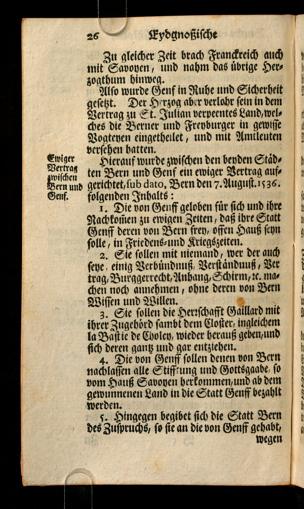 26 Eydgnoßische
Zu gleicher Zeit brach Franckreich auch
mit Savoyen, und nahm das übrige Her-
zogthum hinweg.
Also wurde Genf in Ruhe und Sicherheit
gesetzt. Der Herzog aber verlohr sein in dem
Vertrag zu St. Julian verpeentes Land, wel-
ches die Berner und Freyburger in gewisse
Vogteyen eingetheilet, und mit Amtleuten
versehen hatten.
Ewiger
Vertrag
zwischen
Bern und
Genf.
Hierauf wurde zwischen den beyden Städ-
ten Bern und Genf ein ewiger Vertrag auf-
gerichtet, sub dato, Bern den 7. August. 1536.
folgenden Inhalts:
1. Die von Genff geloben für sich und ihre
Nachkomen zu ewigen Zeiten, daß ihre Statt
Genff deren von Bern frey, offen Hauß seyn
solle, in Friedens- und Kriegszeiten.
2. Sie sollen mit niemand, wer der auch
seye, einig Verbündnuß, Verständnuß, Ver
trag, Burggerecht, Anhang, Schirm, rc. ma-
chen noch annehmen, ohne deren von Bern
Wissen und Willen.
3. Sie sollen die Herschafft Gaillard mit
ihrer Zugehörd sambt dem Closter, ingleichem
la Bastie de Choley, wieder herauß geben, und
sich deren gantz und gar entziehen.
4. Die von Genff sollen denen von Bern
nachlassen alle Stifftung und Gottsgaabe, so
vom Hauß Savoyen herkommen, und ab dem
gewunnenen Land in die Statt Genff bezahlt
werden.
5. Hingegen begibet sich die Statt Bern
des Zuspruchs, so sie an die von Genff gehabt,
wegen